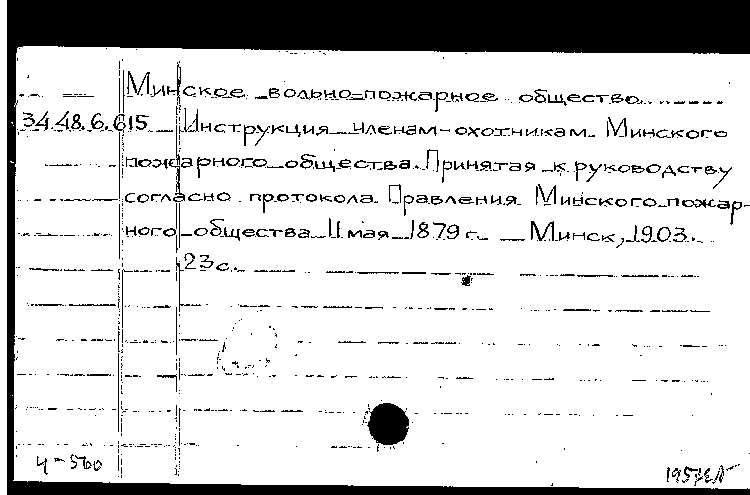 Минское вольно-пожарное общество
34.48.6.615 Инструкция членам-охотникам Минского
пожарного общества. Принятая к руководству
согласно протокола Правления Минского пожар-
ного общества 11 мая 1879 г. — Минск, 1903.
23 с.
4-560